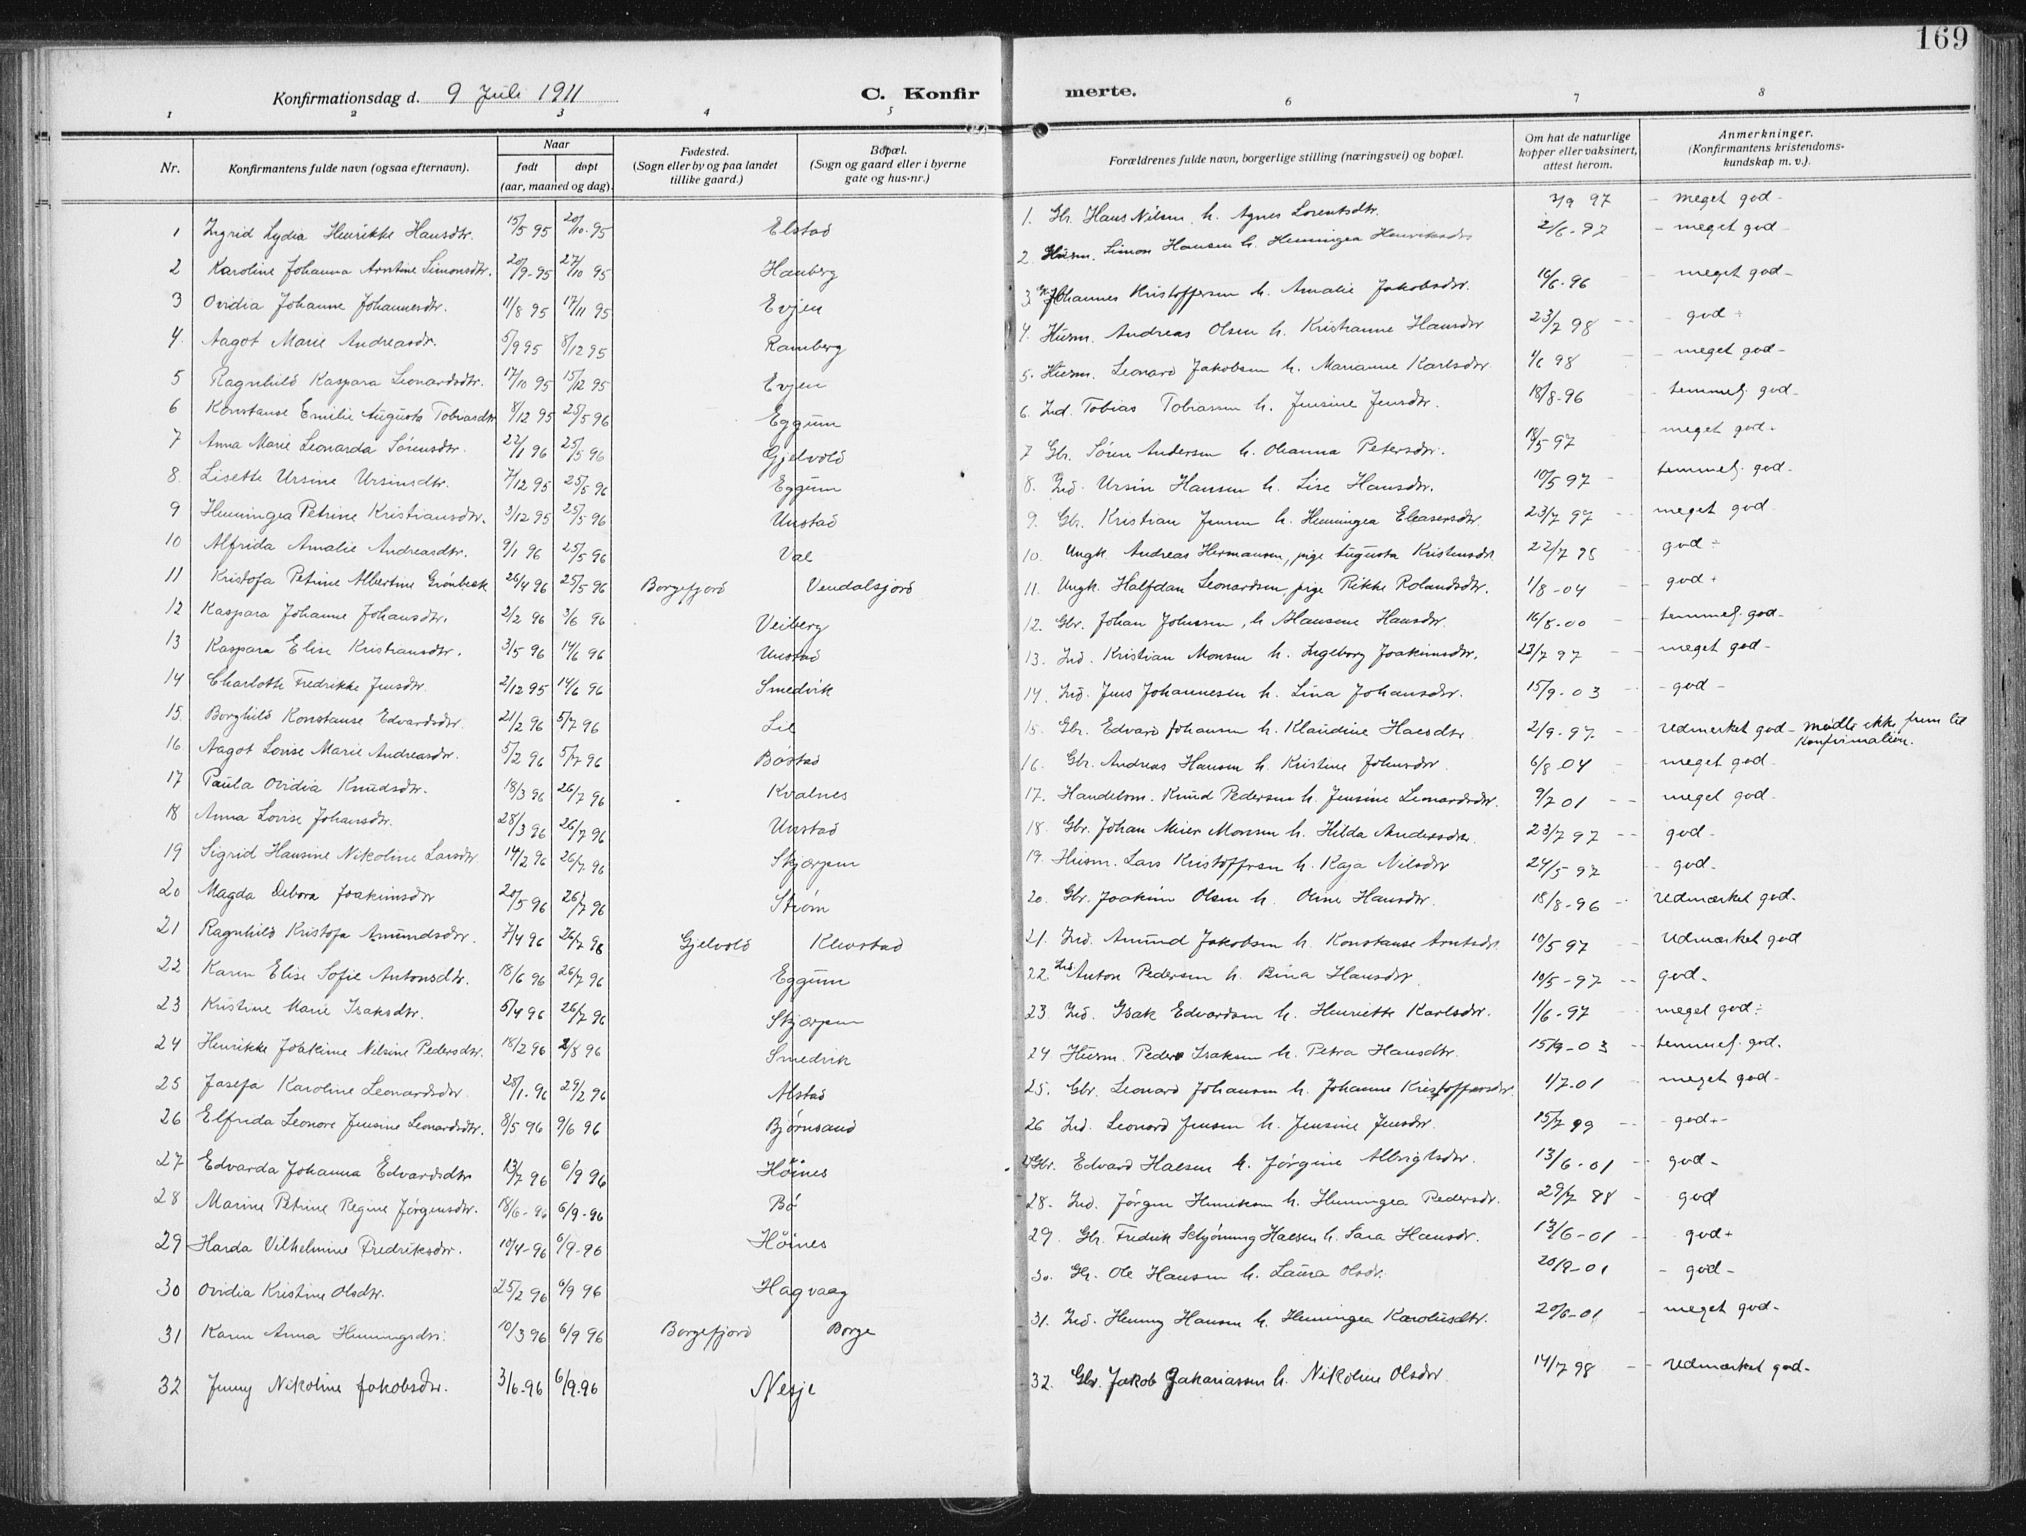 169
Konfirmationsdag d. 9 Juli 1911 C. Konfir merte.
1 2 3 4 5 6 7 8
Nr. Konfirmantens fulde navn (ogsaa efternavn). Naar født døpt (aar, maaned og dag). Fødested. (Sogn eller by og paa landet tillike gaard.) Bopæl. (Sogn og gaard eller i byerne gate og hus-nr.) Forældrenes fulde navn, borgerlige stilling (næringsvei) og bopæl. Om hat de naturlige kopper eller vaksinert, attest herom. Anmerkninger. (Konfirmantens kristendoms-kundskap m. v.).
1 Ingrid Lydia Henrikke Hansdtr. 15/5 95 20/10-95 Elstad 1. Gbr. Hans Nilsen h. Agnes Lorentsdtr. 3/9 97 - meget god -
2 Karoline Johanna Arntine Simonsdtr. 20/9-95 27/10 95 Hauberg 2. Husm. Simon Hansen h. Henningea Henriksdtr 2/6-97 - meget god -
3 Ovidia Johanne Johannesdtr. 11/8 95 17/11 95 Evjen 3. Johannes Kristoffersen h. Amalie Jakobsdtr. 16/6-96 - meget god -
4. Aagot Marie Andreasdr. 5/9 95 8/12 95 Ramberg 4. Husm. Andreas Olsen h. Kristianne Hansdtr 23/7 98 - god ÷
5 Ragnhild Kaspara Leonardsdtr. 17/10 95 15/12 95 Evjen 5. Husm. Leonard Jakobsen h. Marianne Karlsdtr 1/6 98 - meget god -
6 Konstanse Emilie Augusta Tobiasdtr 8/12 95 25/5 96 Eggum 6. Ind. Tobias Tobiassen h. Jensine Jensdtr. 18/8-96 - temmel. god -
7 Anna Marie Leonarda Sørensdtr. 22/1 96 25/5 96 Gjelvold 7 Gbr. Sören Andersen h. Ohanna Petersdtr. 18/5 97 meget god -
8. Lisette Ursine Ursinsdtr. 7/12 95 25/5 96 Eggum 8. Ind. Ursin Hansen h. Lise Hansdtr. 10/5 97 - temmel. god -
9 Henningea Petrine Kristiansdtr. 3/12 95 25/5 96 Unstad 9. Gbr. Kristian Jensen h. Henningea Eleasersdtr 23/7 97 - meget god
10 Alfrida Amalie Andreasdtr. 9/1 96 25/5 96 Val 10. Ungk. Andreas Hermansen, pige Augusta Kristensdtr 22/7 98 god ÷
11 Kristofa Petrine Albertine Grönbeck 26/4 96 25/5 96 Borgefjord Vendalsjord 11. Ungk. Halfdan Leonardsen, pige Rikke Rolandsdtr. 1/8-04 - god +
12 Kaspara Johanne Johansdtr. 2/2 96 3/6 96 Veiberg 12. Gbr. Johan Johnsen, h. Hansine Hansdtr. 16/8-00 - temmel. god -
13 Kaspara Elise Kristiansdtr. 3/5 96 14/6 96 Unstad 13. Ind. Kristian Monsen h. Ingeborg Joakimsdtr. 23/7 97 - meget god -
14 Charlotte Fredrikke Jensdtr. 2/12 95 14/6 96 Smedvik 14. Ind. Jens Johannesen h. Lina Johansdtr. 15/9-03 - god -
15. Borghild Konstanse Edvardsdtr. 21/2 96 5/7 96 Lil 15. Gbr. Edvard Johansen h. Klaudine Haesdtr. 2/9-97 - udmerket god - mødte ikke frem til Konfirmation.
16. Aagot Lovise Marie Andreasdtr. 5/2 96 5/7 96 Böstad 16. Gbr. Andreas Hansen h. Kristine Johnsdtr. 6/8 04 - meget god -
17 Paula Ovidia Knudsdtr. 18/3 96 26/7 96 Kvalnes 17. Handelsm. Knud Pedersen h. Jensine Leonardsdtr. 9/7 01 - - meget god -
18 Anna Lovise Johansdtr. 28/3 96 26/7 96 Unstad 18. Gbr. Johan Meier Monsen h. Hilda Andersdtr. 23/7 97 - - god -
19 Sigrid Hansine Nikoline Larsdtr. 14/2 96 26/7 96 Skjærpen 19. Husm. Lars Kristoffersen h. Kaja Nilsdtr 24/5-97 - god -
20 Magda Debora Joakimsdtr 20/5 96 26/7 96 Ström 20. Gbr. Joakim Olsen h. Oline Hansdtr. 18/8-96 - udmærket god -
21 Ragnhild Kristofa Amundsdtr. 7/4 96 26/7 96 Gjelvold Klevstad 21. Ind. Amund Jakobsen h. Konstanse Arntsdtr 10/5 97 - udmærket god
22 Karen Elise Sofie Antonsdtr. 18/6 96 26/7 96 Eggum 22. Ind. Anton Pedersen h. Bina Hansdtr. 10/5-97 - - god -
23 Kristine Marie Isaksdtr. 5/4 96 26/7 96 Skjærpen 23. Ind. Isak Edvardsen h. Henriette Karlsdtr. 1/6-97 - meget god ÷
24 Henrikke Joakime Nilsine Pedersdtr. 18/2 96 2/8 96 Smedvik 24. Husm. Peder Isaksen h. Petra Hansdtr. 15/9-03 - temmel. god.
25 Josefa Karoline Leonardsdtr. 28/1-96 29/2 96 Alstad 25. Gbr. Leonard Johansen h. Johanne Kristoffersdtr. 1/7-01 - meget god -
26 Elfrida Leonore Jensine Leonardsdtr. 8/5 96 9/6 96 Björnsand 26 Ind. Leonard Jensen h. Jensine Jensdtr. 15/7 99 - - god + -
27 Edvarda Johanna Edvardsdtr 13/7 96 6/9 96 Höines 27 Gbr. Edvard Haesen h. Jörgine Albrigtsdtr. 13/6-01 - god -
28 Marine Petrine Regine Jörgensdtr. 18/6-96 6/9-96 Bö 28. Ind. Jörgen Henriksen h. Henningea Pedersdtr. 29/7 88 - god
29 Harda Vilhelmine Fredriksdtr. 10/4-96 6/9-96 Höines 29. Gbr. Fredrik Schjönning Haesen h. Sara Hansdtr. 13/6-01 - god +
30 Ovidia Kristine Olsdtr. 25/2 96 6/9 96 Hagvaag 30. Gbr. Ole Hansen h. Laura Olsdr. 20/9-01 - god -
31 Karen Anna Henningsdtr. 10/3 96 6/9 96 Borgefjord Borge 31. Ind. Henning Hansen h. Henningea Karolusdtr. 20/6-01 - meget god -
32 Jenny Nikoline Jakobsdtr. 3/6-96 6/9-96 Nesje 32. Gbr. Jakob Zakariassen h. Nikoline Olsdtr 14/7 98 - - udmærket god -